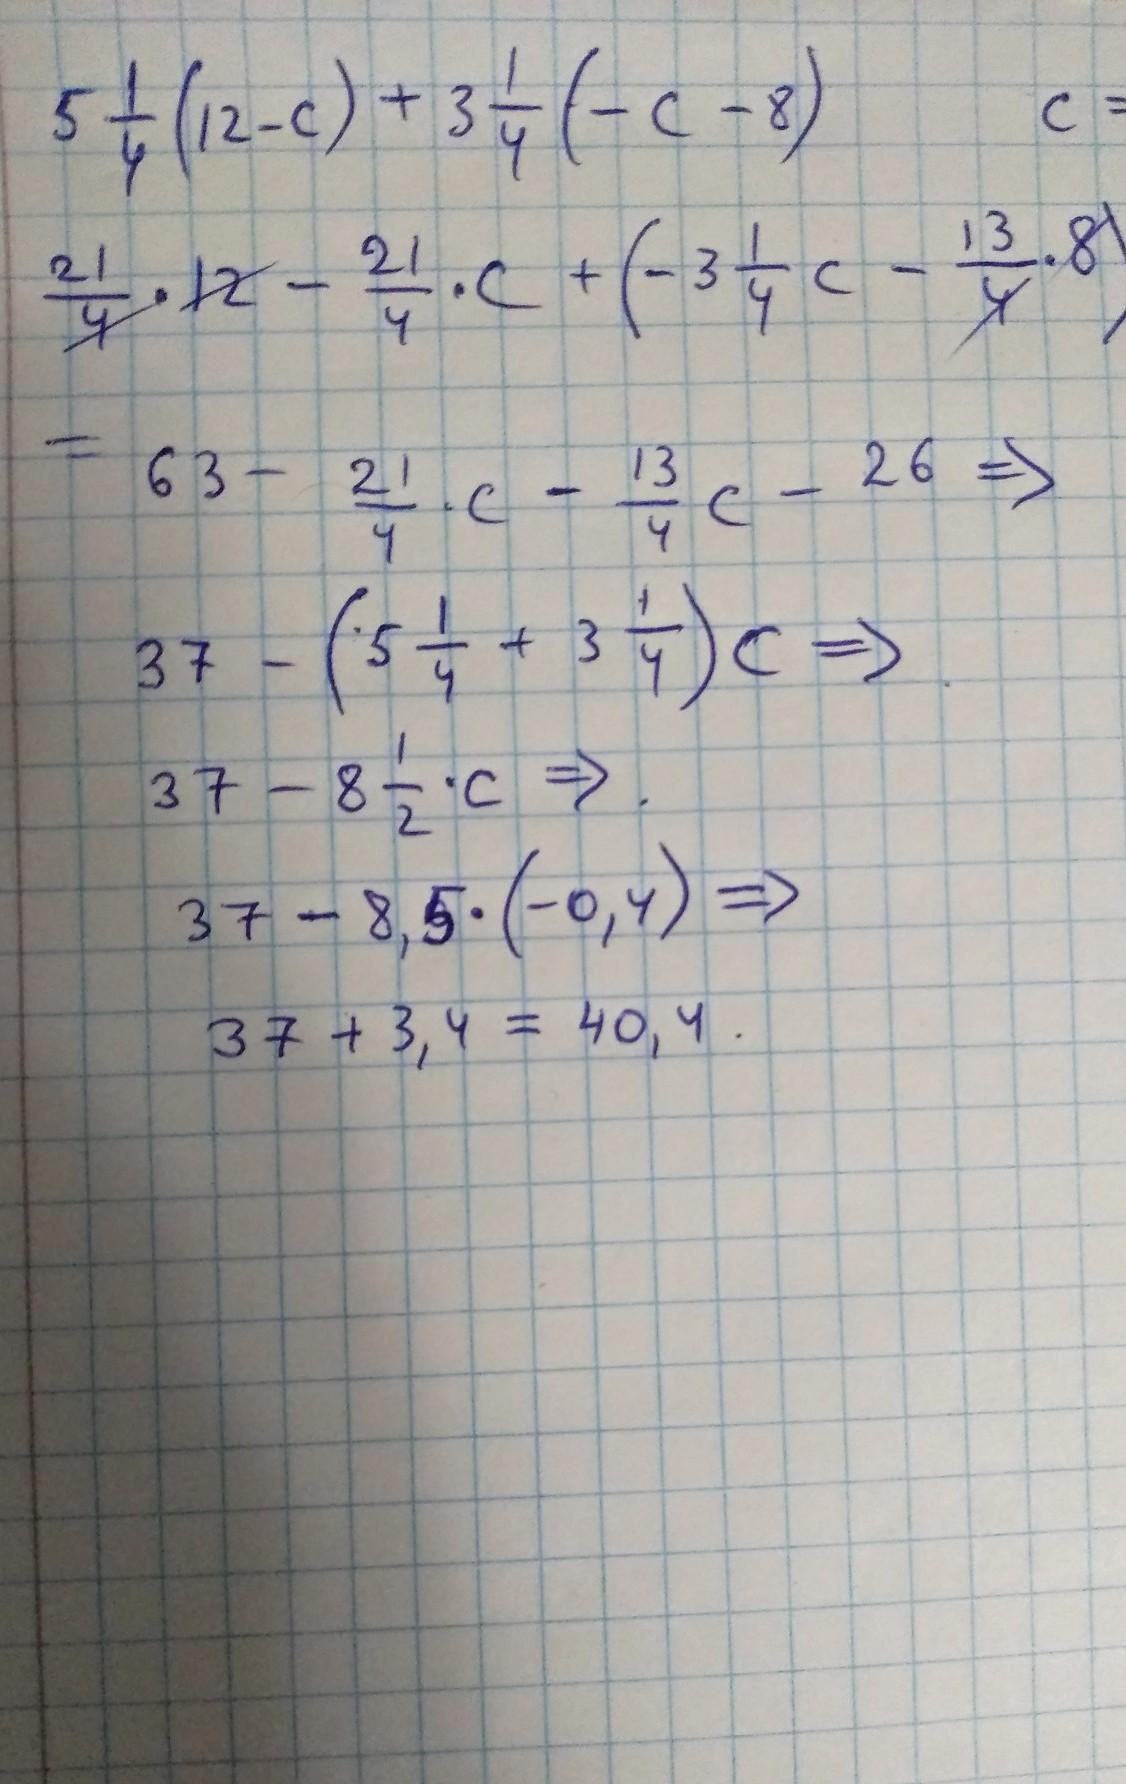 5 1/4 (12 - c) + 3 1/4 (- c - 8) c =
21/4 · 12 - 21/4 · c + (- 3 1/4 c - 13/4 · 8)
= 63 - 21/4 · c - 13/4 c - 26 ⇒
37 - (5 1/4 + 3 1/4) c ⇒
37 - 8 1/2 · c ⇒
37 - 8,5 · (-0,4) ⇒
37 + 3,4 = 40,4.